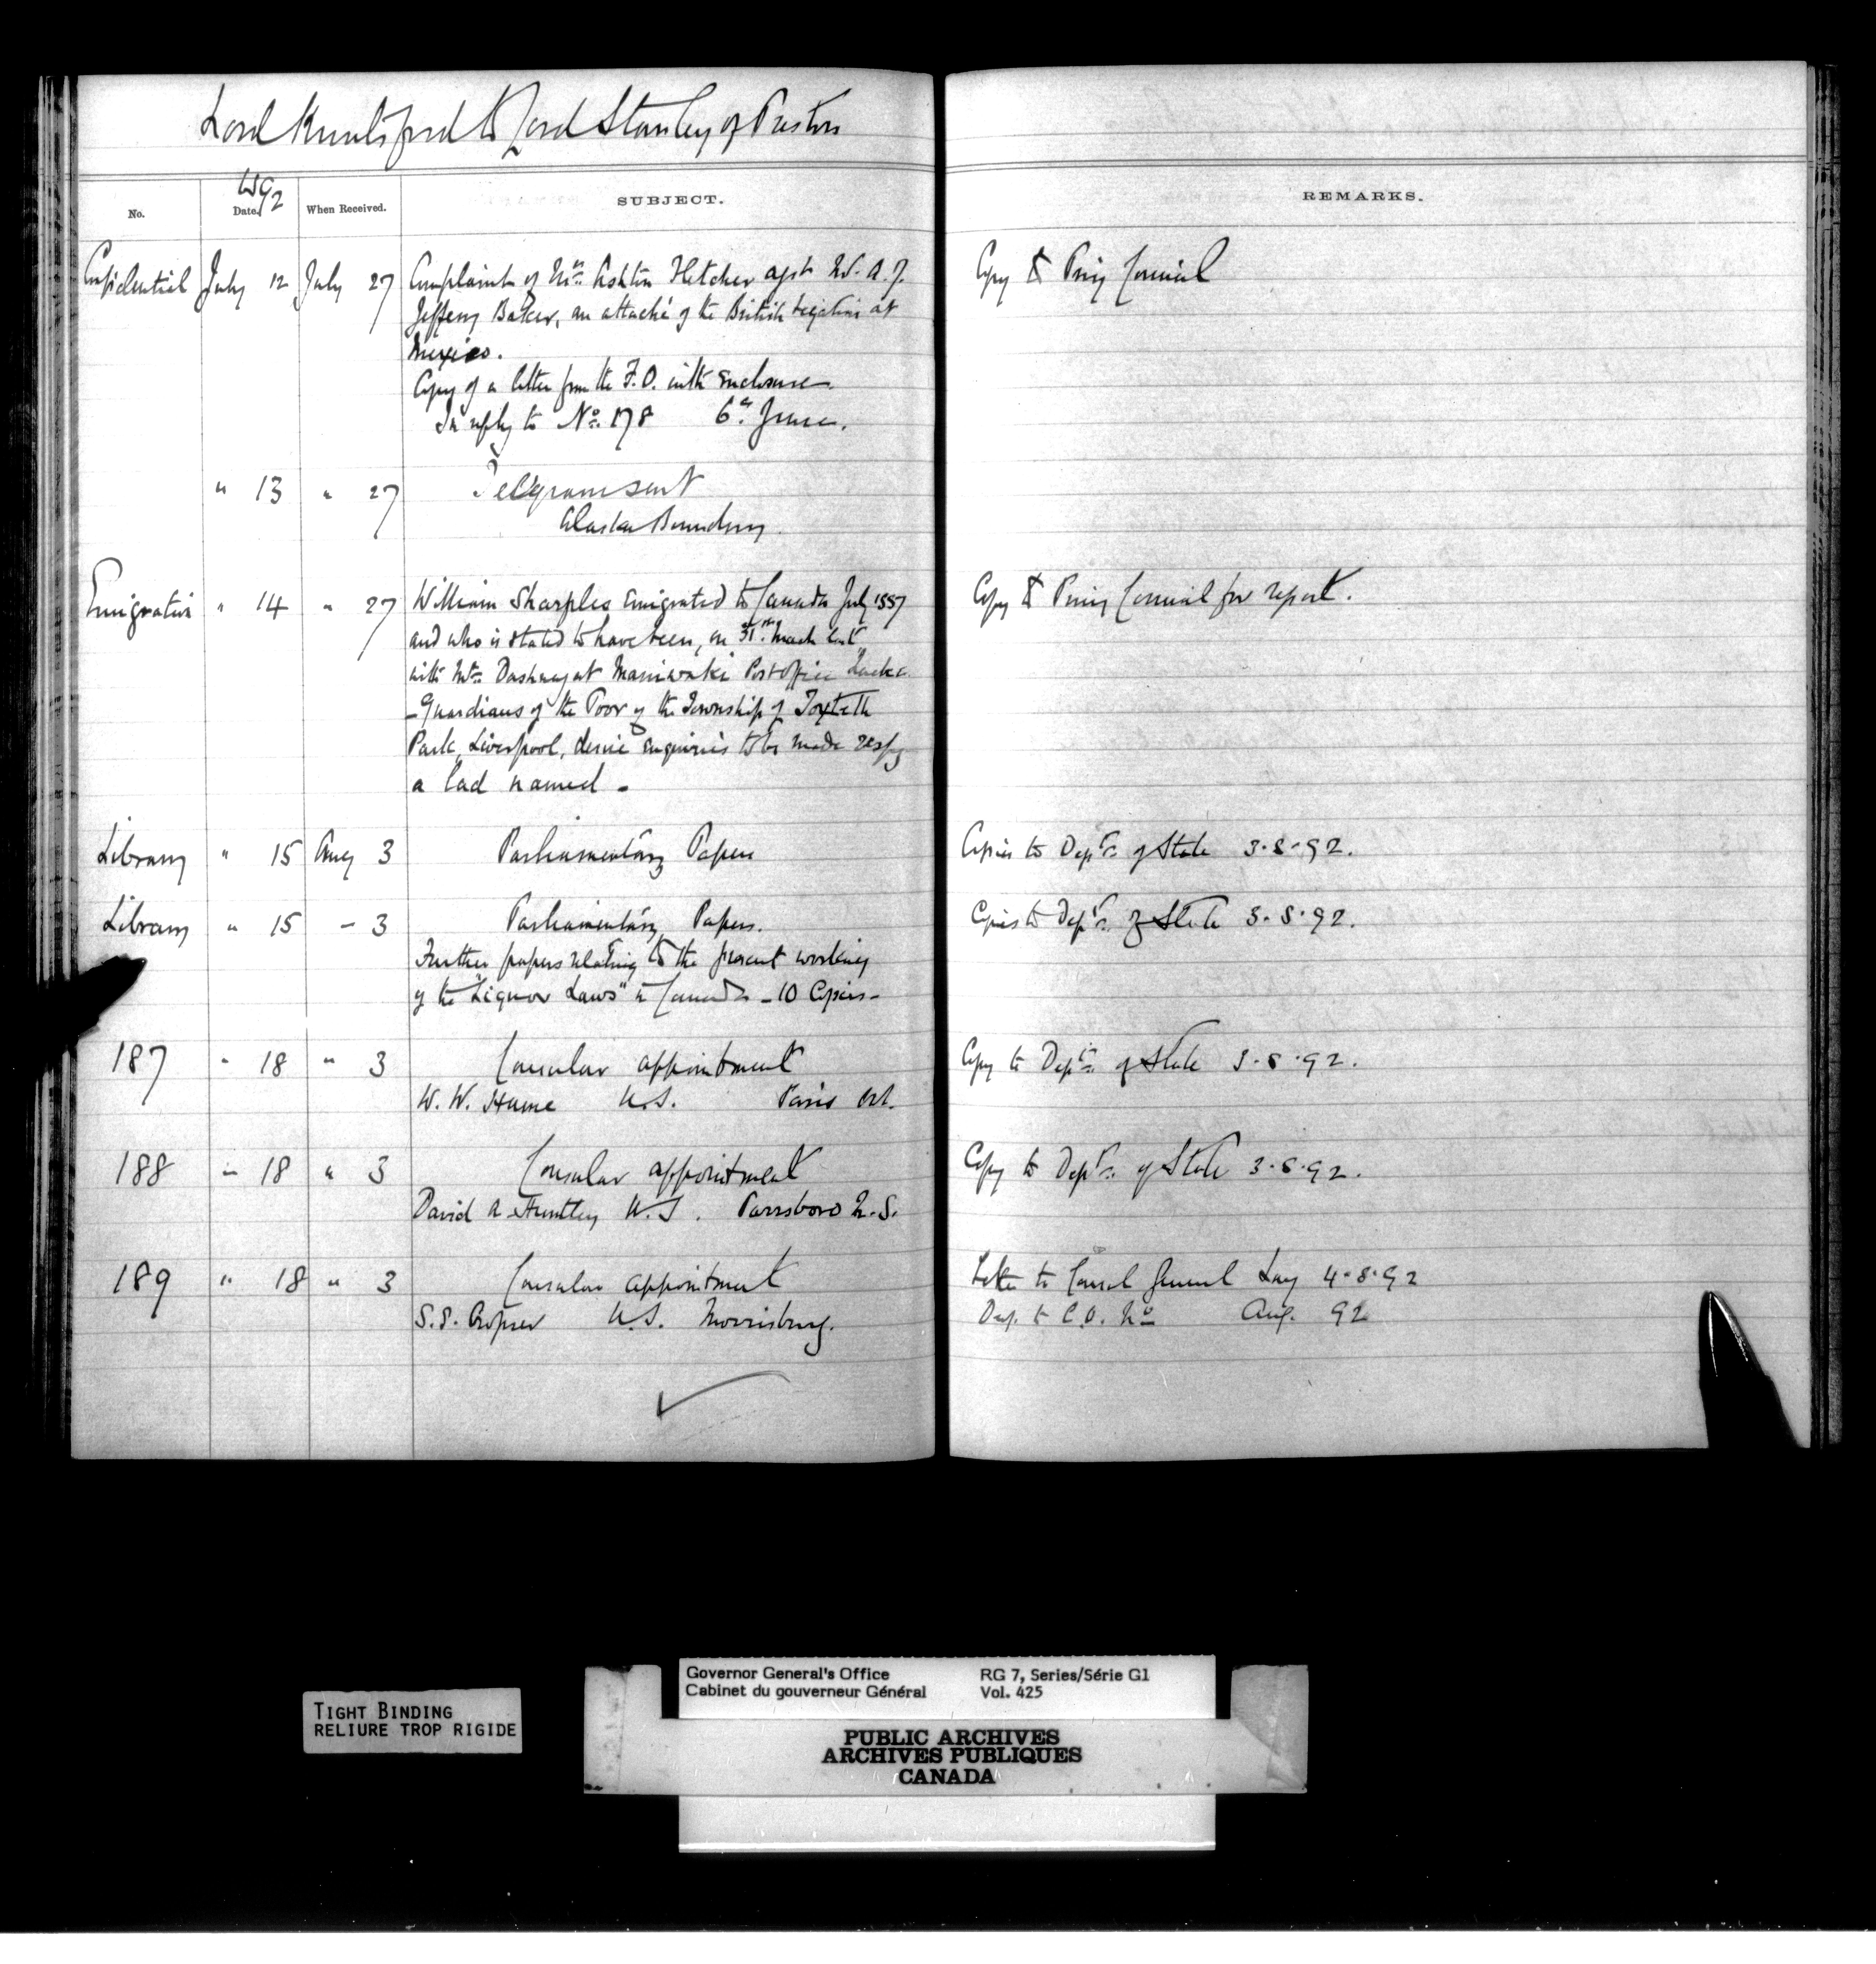 Lord Knutsford to Lord Stanley of Preston
No.
1892
Date.
When Received.
SUBJECT.
REMARKS.
Confidential July 12 July 27 Complaint of Mrs Ashton Fletcher agst W. A. F.
Copy to Privy Council
Jeffery Baker, an attaché of the British Legation at
Mexico.
Copy of a letter from the F.O. with Enclosure.
In reply to No. 178 6th June.
" 13 " 27 Telegram sent
Alaska Boundary
Emigration " 14 " 27 William Sharples Emigrated to Canada July 1887
Copy to Privy Council for report.
and who is stated to have been, on 31st March last
with Mr. at Maniwaki Post office
- Guardians of the Poor of the Township of Toxteth
Park, Liverpool, desire enquiries to be made respg
a lad named -
Library " 15 Aug 3 Parliamentary Papers
Copies to Dept. of State 3.8.92.
Library " 15 - 3 Parliamentary Papers.
Copies to Dept. of State 3.8.92.
Further papers relating to the present working
of the "Liquor Laws" in Canada - 10 Copies -
187 " 18 " 3 Consular appointment
Copy to Dept. of State 3.8.92.
W. W. Hume U.S. Paris Ont.
188 " 18 " 3 Consular appointment
Copy to Dept. of State 3.8.92.
David A Huntley U.S. Parrsboro N.S.
189 " 18 " 3 Consular appointment
Letter to Consul General Lay 4.8.92
S.S. U.S. Morrisburg.
Desp. to C.O. No Aug. 92
Governor General's Office
Cabinet du gouverneur Général
RG 7, Series/Série G1
Vol. 425
TIGHT BINDING
RELIURE TROP RIGIDE
PUBLIC ARCHIVES
ARCHIVES PUBLIQUES
CANADA